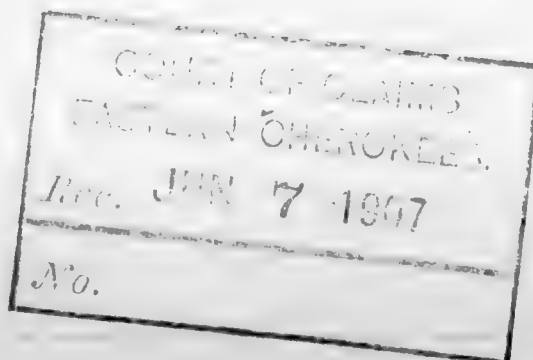 COURT OF CLAIMS
EASTERN CHEROKEES.
Rec. JUN 7 1907
No.